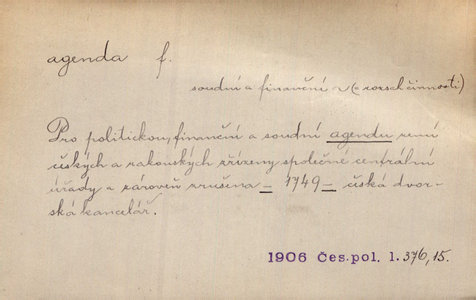 agenda f.
soudní a finanční ~ (= rozsah činnosti)
Pro politickou, finanční a soudní agendu zemí
českých a rakouských zřízeny společné centrální
úřady a zároveň zrušena – 1749 – česká dvor-
ská kancelář.
1906 Čes. pol. 1. 376, 15.